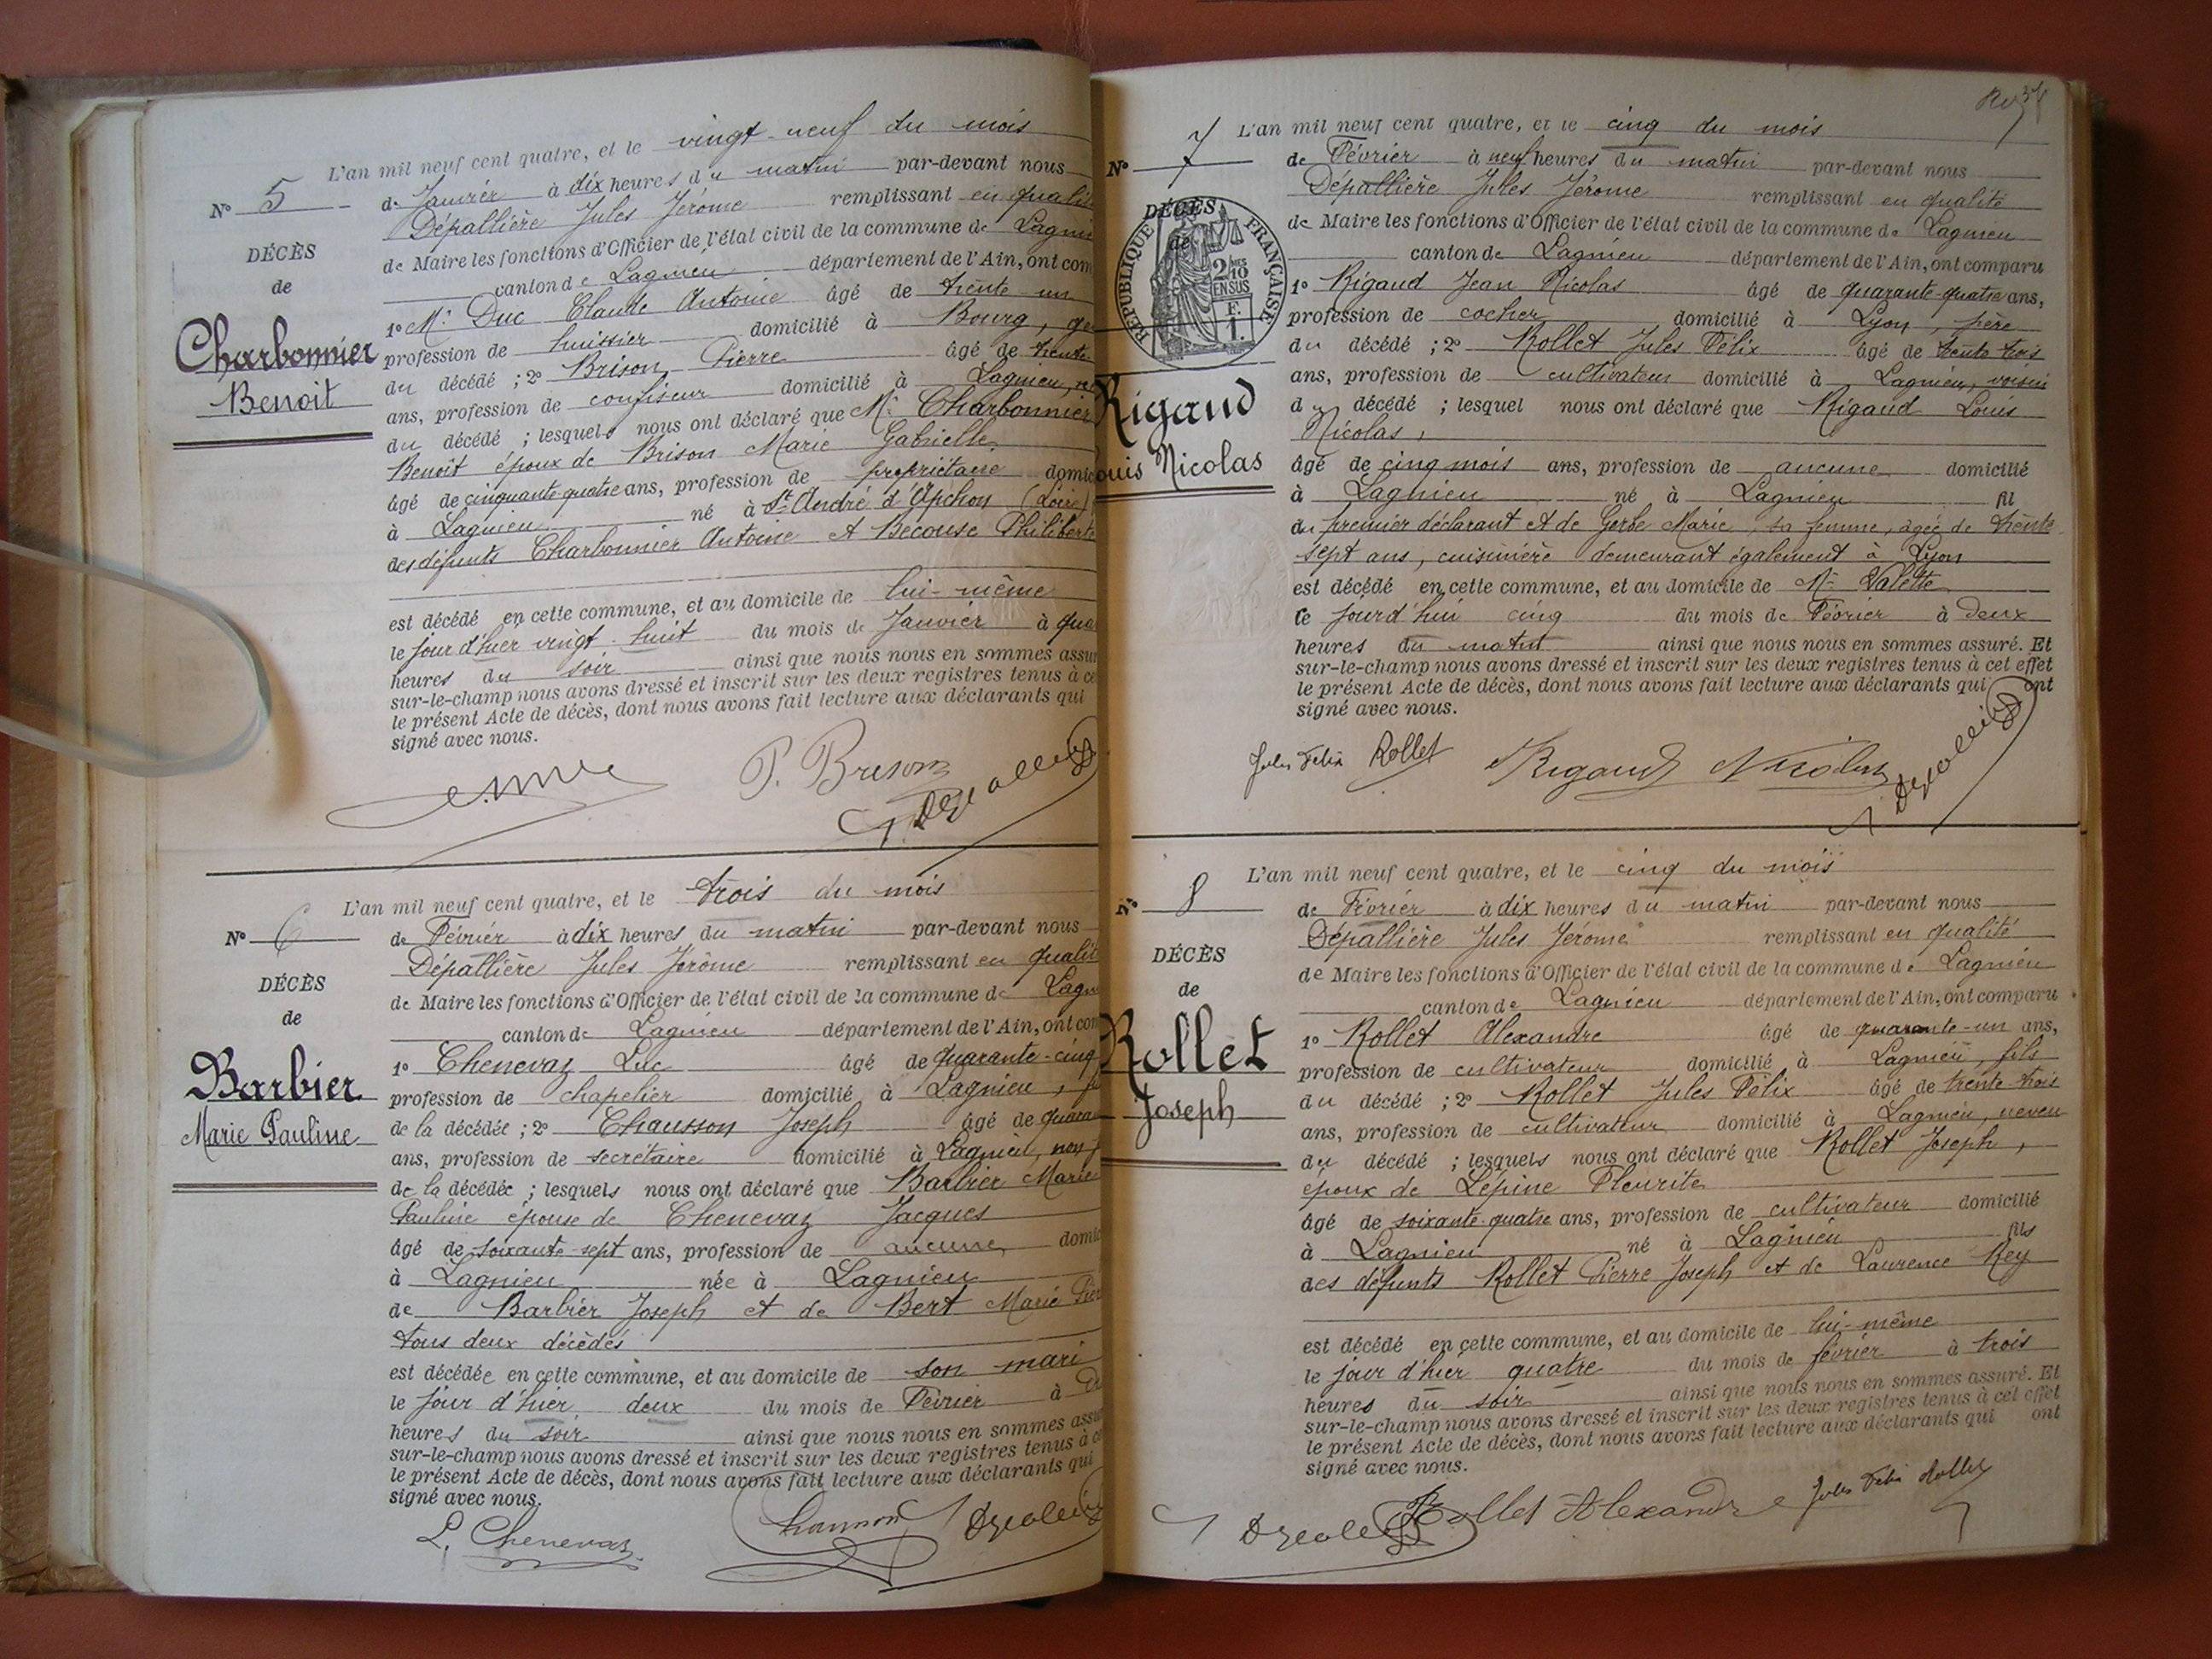 L'an mil neuf cent quatre, et le vingt-neuf du mois
N° 5
de Janvier à dix heures du matin par-devant nous
Dépallière Jules Jérome remplissant en qualité
DÉCÈS
de Maire les fonctions d'Officier de l'état civil de la commune de Lagnieu
de
canton de Lagnieu département de l'Ain, ont com
1° Mr Duc Claude Antoine âgé de trente-un
Charbonnier
profession de huissier domicilié à Bourg,
Benoit
du décédé ; 2° Brison Pierre âgé de trente
ans, profession de confiseur domicilié à Lagnieu,
du décédé ; lesquels nous ont déclaré que Mr Charbonnier
Benoît époux de Brison Marie Gabrielle
âgé de cinquante-quatre ans, profession de propriétaire domic
à Lagnieu né à St André d'Apchon (Loire)
des défunts Charbonnier Antoine et Becouse Philiberte
est décédé en cette commune, et au domicile de lui-même
le jour d'hier vingt-huit du mois de Janvier à qua
heures du soir ainsi que nous nous en sommes assu
sur-le-champ nous avons dressé et inscrit sur les deux registres tenus à ce
le présent Acte de décès, dont nous avons fait lecture aux déclarants qui
signé avec nous.
P. Brison
J. Depallière
L'an mil neuf cent quatre, et le trois du mois
N° 6
de Février à dix heures du matin par-devant nous
Dépallière Jules Jérôme remplissant en qualité
DÉCÈS
de Maire les fonctions d'Officier de l'état civil de la commune de Lagn
de
canton de Lagnieu département de l'Ain, ont com
1° Chenevaz Luc âgé de quarante-cinq
Barbier
profession de chapelier domicilié à Lagnieu,
Marie Pauline
de la décédée ; 2° Chausson Joseph âgé de quara
ans, profession de secrétaire domicilié à Lagnieu, non
de la décédée ; lesquels nous ont déclaré que Barbier Marie
Pauline épouse de Chenevaz Jacques
âgé de soixante-sept ans, profession de aucune domic
à Lagnieu née à Lagnieu
de Barbier Joseph et de Bert Marie
tous deux décédés
est décédée en cette commune, et au domicile de son mari
le jour d'hier deux du mois de Février à
heures du soir ainsi que nous nous en sommes assu
sur-le-champ nous avons dressé et inscrit sur les deux registres tenus à ce
le présent Acte de décès, dont nous avons fait lecture aux déclarants qui
signé avec nous.
L. Chenevaz Chausson Depallière
L'an mil neuf cent quatre, et le cinq du mois
N° 7
de Février à neuf heures du matin par-devant nous
Dépallière Jules Jérome remplissant en qualité
DÉCÈS
de
RÉPUBLIQUE FRANÇAISE
2/10 EN SUS
F. 1.
de Maire les fonctions d'Officier de l'état civil de la commune de Lagnieu
canton de Lagnieu département de l'Ain, ont comparu
1° Rigaud Jean Nicolas âgé de quarante-quatre ans,
profession de cocher domicilié à Lyon, père
du décédé ; 2° Rollet Jules Félix âgé de trente-trois
ans, profession de cultivateur domicilié à Lagnieu, voisin
Rigaud
du décédé ; lesquel nous ont déclaré que Rigaud Louis
Nicolas,
ouis Nicolas
âgé de cinq mois ans, profession de aucune domicilié
à Lagnieu né à Lagnieu fil
du premier déclarant et de Gerbe Marie, sa femme, agée de trente
sept ans, cuisinière demeurant également à Lyon
est décédé en cette commune, et au domicile de Valette
ce jourd'hui cinq du mois de Février à deux
heures du matin ainsi que nous nous en sommes assuré. Et
sur-le-champ nous avons dressé et inscrit sur les deux registres tenus à cet effet
le présent Acte de décès, dont nous avons fait lecture aux déclarants qui ont
signé avec nous.
Jules Felix Rollet Rigaud Nicolas J. Depallière
L'an mil neuf cent quatre, et le cinq du mois
N° 8
de Février à dix heures du matin par-devant nous
Dépallière Jules Jérome remplissant en qualité
DÉCÈS
de Maire les fonctions d'Officier de l'état civil de la commune de Lagnieu
de
canton de Lagnieu département de l'Ain, ont comparu
Rollet
1° Rollet Alexandre âgé de quarante-un ans,
profession de cultivateur domicilié à Lagnieu, fils
Joseph
du décédé ; 2° Rollet Jules Félix âgé de trente-trois
ans, profession de cultivateur domicilié à Lagnieu, neveu
du décédé ; lesquels nous ont déclaré que Rollet Joseph,
époux de Lépine Fleurite
âgé de soixante-quatre ans, profession de cultivateur domicilié
à Lagnieu né à Lagnieu fils
des défunts Rollet Pierre Joseph et de Laurence Rey
est décédé en cette commune, et au domicile de lui-même
le jour d'hier quatre du mois de février à trois
heures du soir ainsi que nous nous en sommes assuré. Et
sur-le-champ nous avons dressé et inscrit sur les deux registres tenus à cet effet
le présent Acte de décès, dont nous avons fait lecture aux déclarants qui ont
signé avec nous.
Depallière Rollet Alexandre Jules Felix Rollet